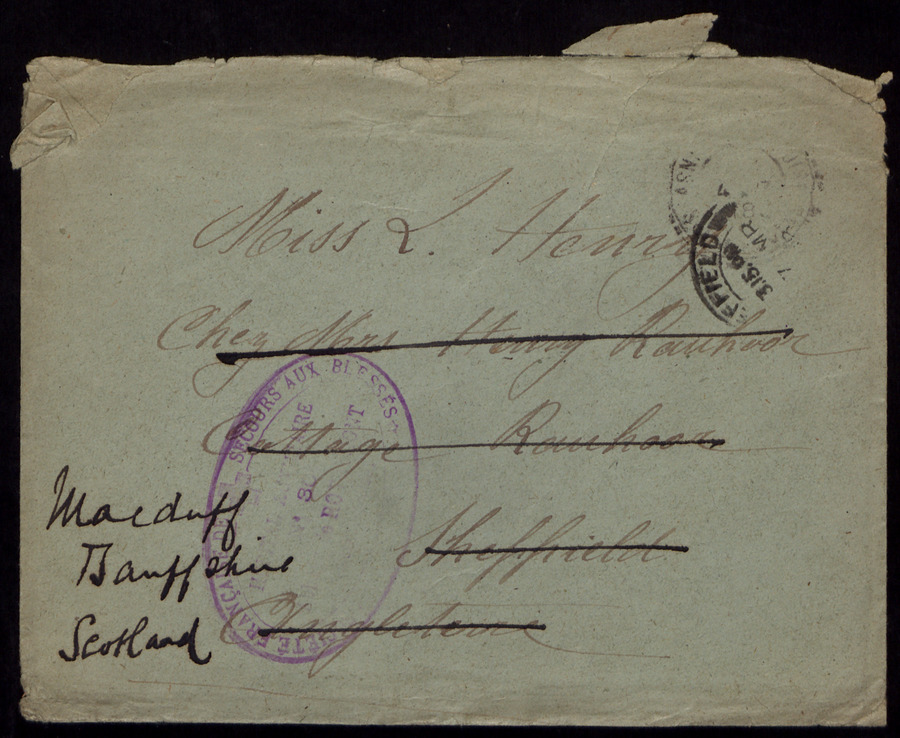 Miss L. Henry
Chez Mrs Henry Ranmoor
Cottage Ranmoor
Sheffield
Angleterre
Macduff
Banffshire
Scotland
SECOURS AUX BLESSÉS
FIELD
3.15
MR